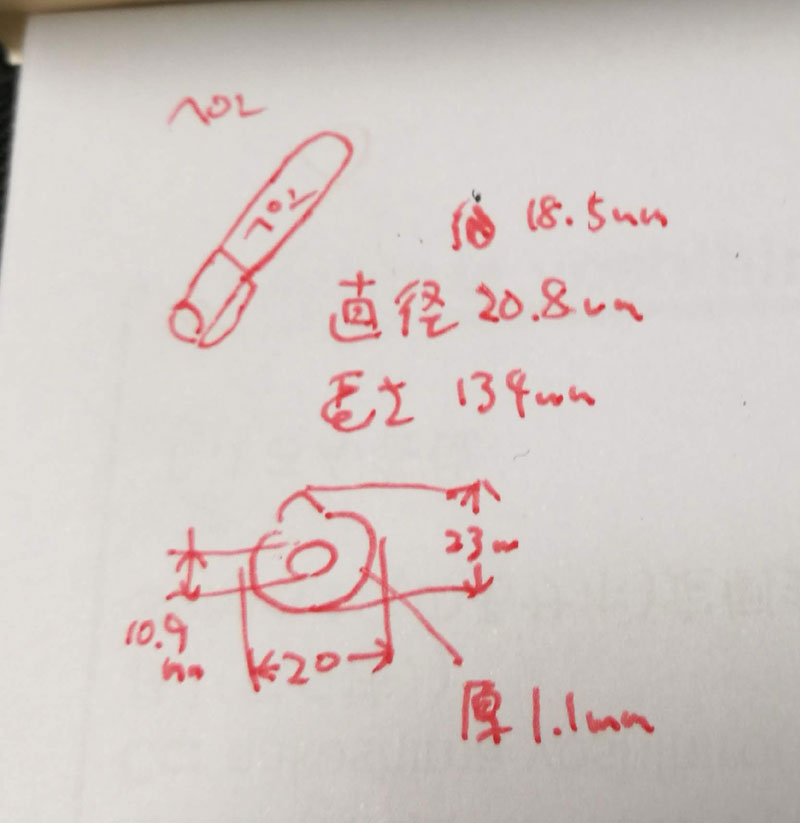 ペロ
18.5mm
直径 20.8mm
長さ 134mm
23m
10.9
mm
20
厚 1.1mm